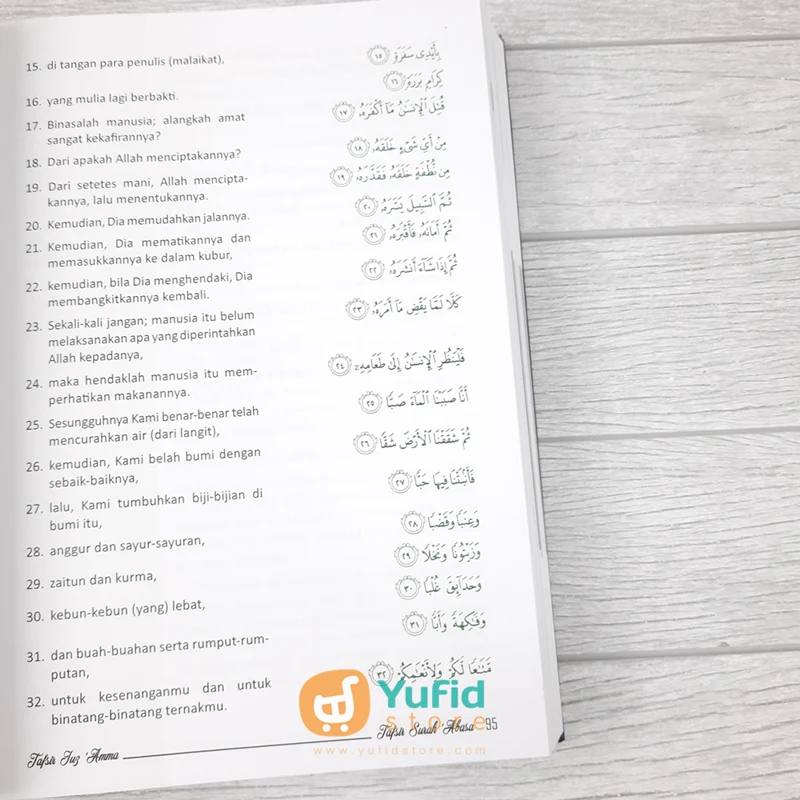 15. di tangan para penulis (malaikat),
بِأَيْدِى سَفَرَةٍ ١٥
16. yang mulia lagi berbakti.
كِرَامٍ بَرَرَةٍ ١٦
17. Binasalah manusia; alangkah amat
sangat kekafirannya?
قُتِلَ ٱلْإِنسَٰنُ مَآ أَكْفَرَهُۥ ١٧
18. Dari apakah Allah menciptakannya?
مِنْ أَىِّ شَىْءٍ خَلَقَهُۥ ١٨
19. Dari setetes mani, Allah mencipta-
kannya, lalu menentukannya.
مِن نُّطْفَةٍ خَلَقَهُۥ فَقَدَّرَهُۥ ١٩
20. Kemudian, Dia memudahkan jalannya.
ثُمَّ ٱلسَّبِيلَ يَسَّرَهُۥ ٢٠
21. Kemudian, Dia mematikannya dan
memasukkannya ke dalam kubur,
ثُمَّ أَمَاتَهُۥ فَأَقْبَرَهُۥ ٢١
22. kemudian, bila Dia menghendaki, Dia
membangkitkannya kembali.
ثُمَّ إِذَا شَآءَ أَنشَرَهُۥ ٢٢
23. Sekali-kali jangan; manusia itu belum
melaksanakan apa yang diperintahkan
Allah kepadanya,
كَلَّا لَمَّا يَقْضِ مَآ أَمَرَهُۥ ٢٣
24. maka hendaklah manusia itu mem-
perhatikan makanannya.
فَلْيَنظُرِ ٱلْإِنسَٰنُ إِلَىٰ طَعَامِهِۦٓ ٢٤
25. Sesungguhnya Kami benar-benar telah
mencurahkan air (dari langit),
أَنَّا صَبَبْنَا ٱلْمَآءَ صَبًّا ٢٥
26. kemudian, Kami belah bumi dengan
sebaik-baiknya,
ثُمَّ شَقَقْنَا ٱلْأَرْضَ شَقًّا ٢٦
27. lalu, Kami tumbuhkan biji-bijian di
bumi itu,
فَأَنۢبَتْنَا فِيهَا حَبًّا ٢٧
28. anggur dan sayur-sayuran,
وَعِنَبًا وَقَضْبًا ٢٨
29. zaitun dan kurma,
وَزَيْتُونًا وَنَخْلًا ٢٩
30. kebun-kebun (yang) lebat,
وَحَدَآئِقَ غُلْبًا ٣٠
31. dan buah-buahan serta rumput-rum-
putan,
وَفَٰكِهَةً وَأَبًّا ٣١
32. untuk kesenanganmu dan untuk
binatang-binatang ternakmu.
مَّتَٰعًا لَّكُمْ وَلِأَنْعَٰمِكُمْ ٣٢
Yufid
store
www.yufidstore.com
Tafsir Surah 'Abasa 95
Tafsir Juz 'Amma